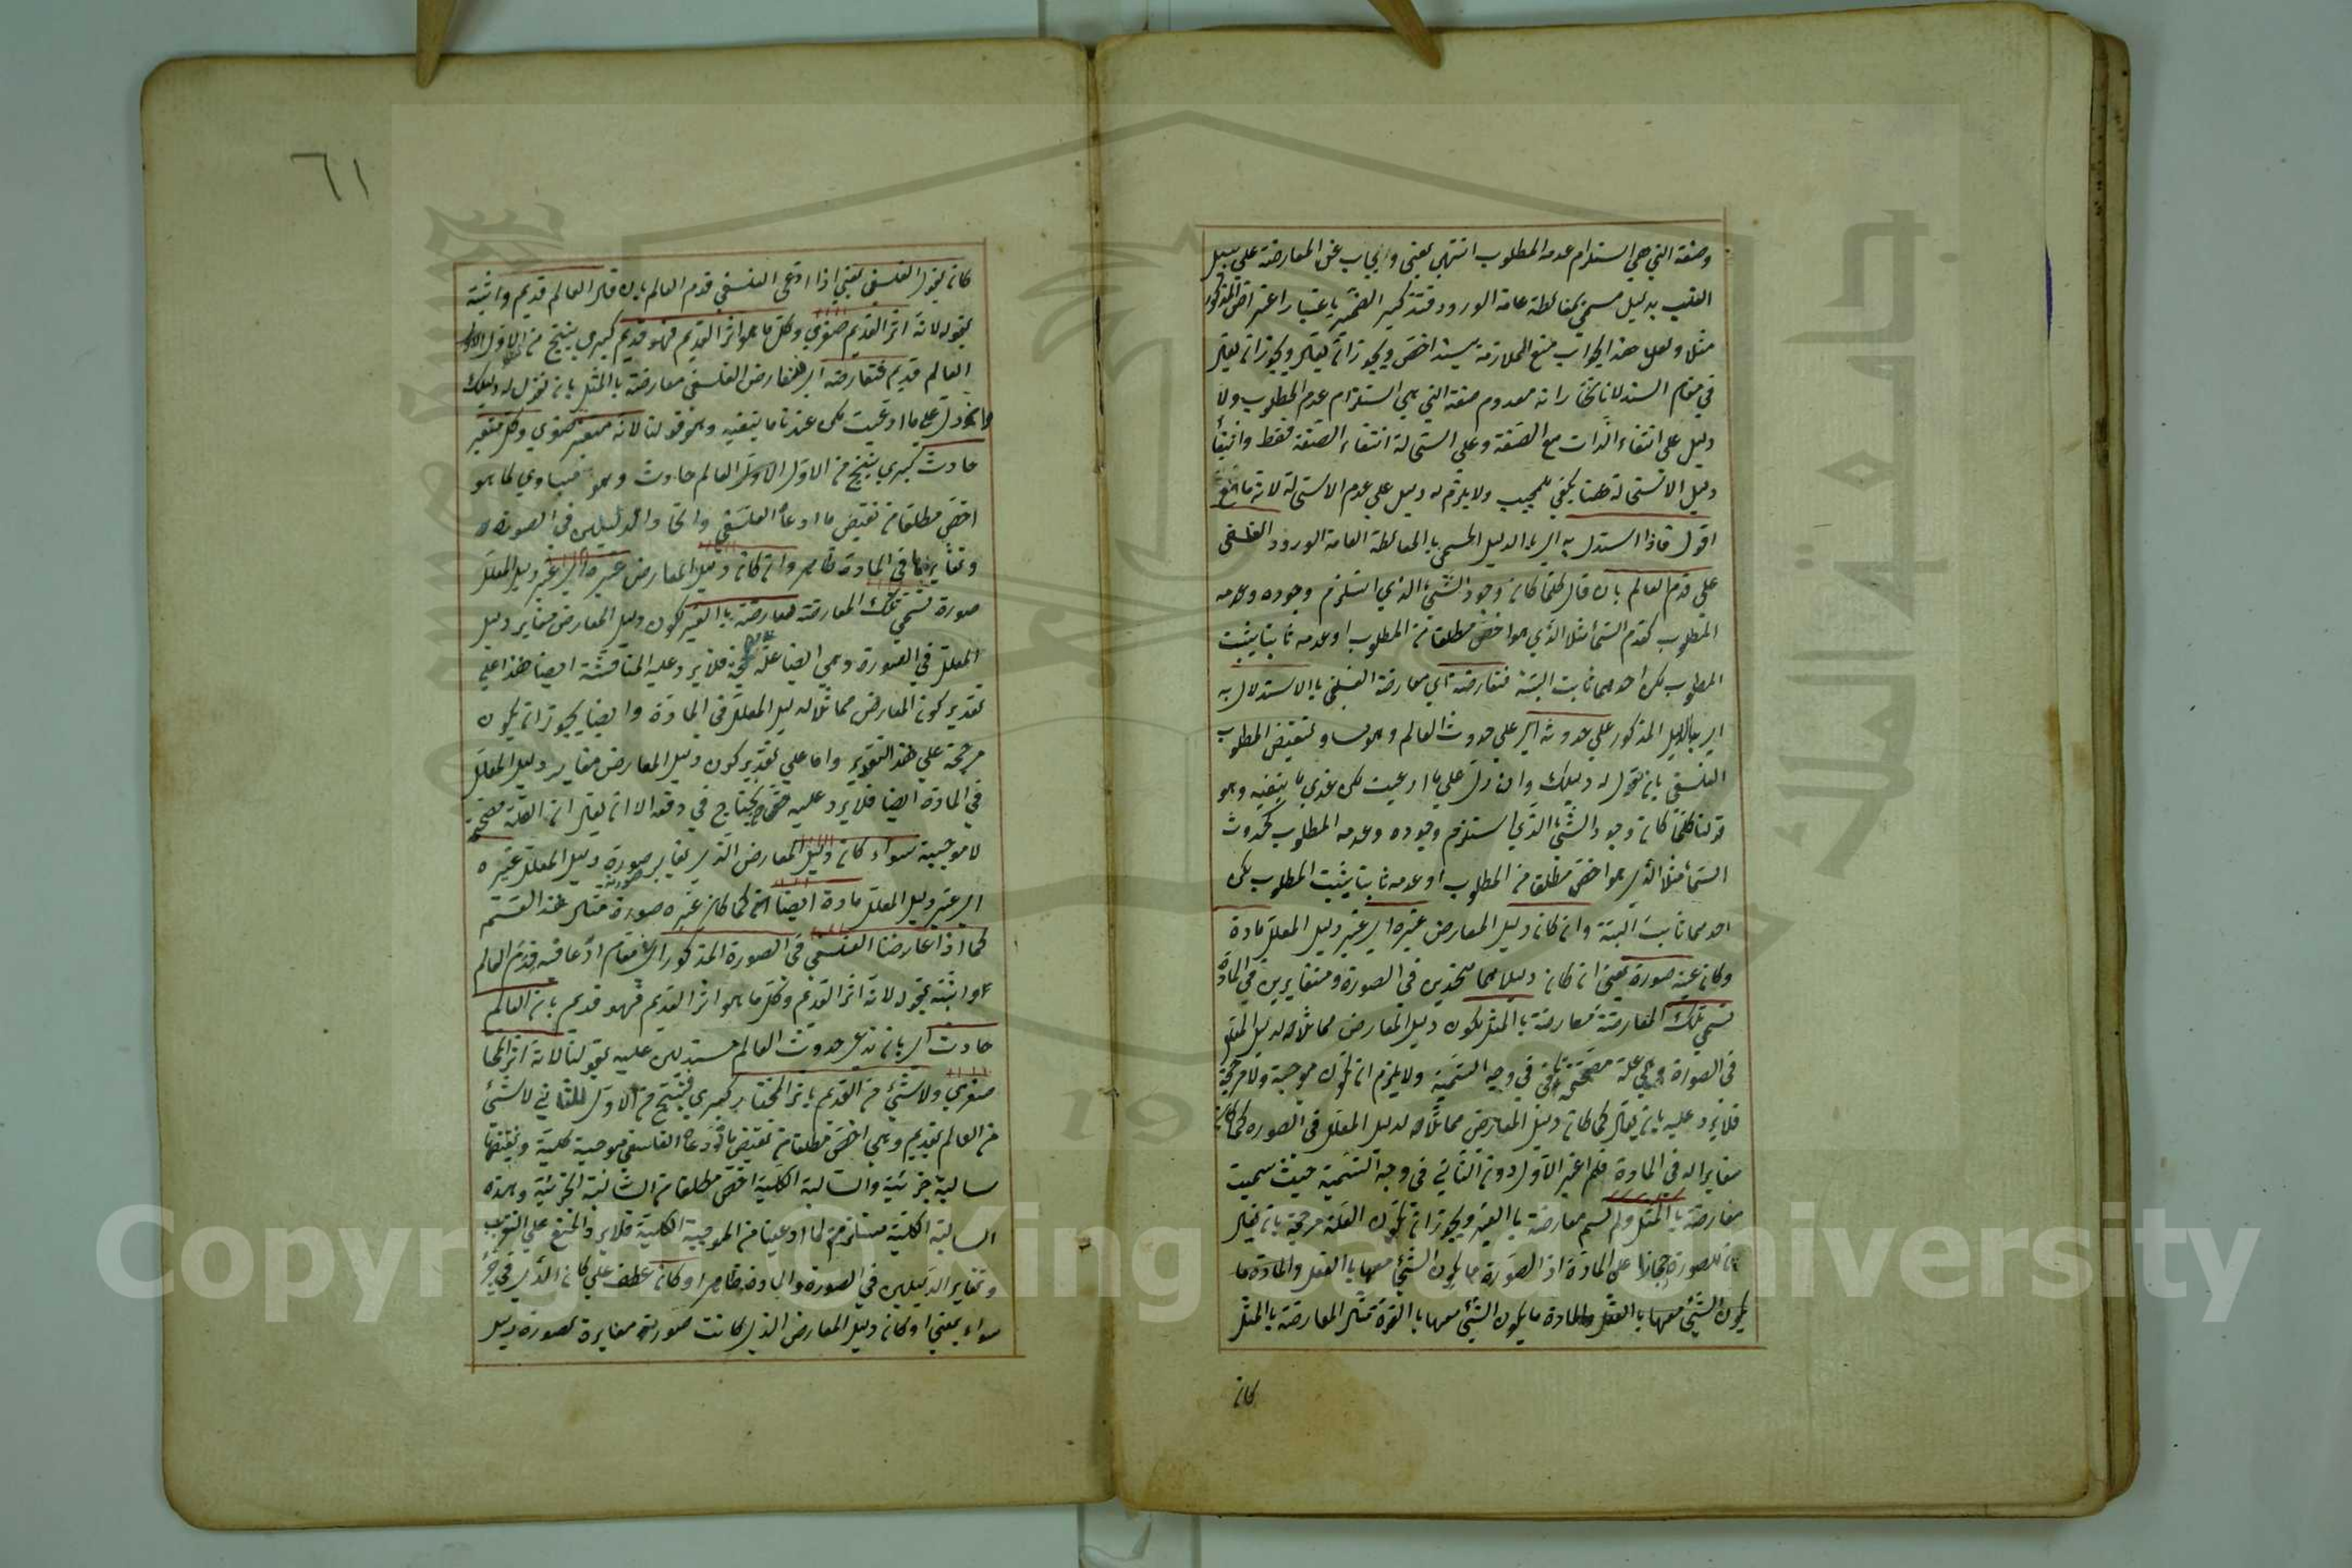 وصفة التي هي استلزام عدمه المطلوب انتهى يعني ويجاب عن المعارضة على سبيل
القلب بدليل مسمى بمغالطة عامة الورود فتذكير الضمير باعتبار اعتراض المذكور
مثلا ولعل هذا الجواب منع الملازمة بسند اخص ويجوز ان يقال ويجوز ان يقال
في مقام السند لانا نختار انه معدوم صفته التي هي استلزام عدم المطلوب ولا
دليل على انتفاء الذات مع الصفة وعلى استحالة انتفاء الصفة فقط وانتفاء
دليل الاستحالة ههنا يكفي للمجيب ولا يلزم له دليل على عدم الاستحالة لانه مانع
اقول فاذا استدل به اي بالدليل المسمى بالمغالطة العامة الورود الفلسفي
على قدم العالم بان قال كلما كان وجود الشيء الذي استلزم وجوده وعدمه
المطلوب كقدم السماء مثلا الذي هو اخص مطلقا من المطلوب او عدمه ثابتا يثبت
المطلوب لكن احدهما ثابت البتة فتعارضه اي معارضة الفلسفي بالاستدلال به
اي بالدليل المذكور على حدوثه اي على حدوث العالم وهو مساو لنقيض المطلوب
الفلسفي بان نقول له دليلك وان دل على ما ادعيت لكن عندي ما ينفيه وهو
قولنا كلما كان وجود الشيء الذي استلزم وجوده وعدمه المطلوب كحدوث
السماء مثلا الذي هو اخص مطلقا من المطلوب او عدمه ثابتا يثبت المطلوب لكن
احدهما ثابت البتة وان كان دليل المعارض غيره اي غير دليل المعلل مادة
وكان عينه صورة يعني ان كان دليلاهما متحدين في الصورة ومتغايرين في المادة
تسمى تلك المعارضة معارضة بالمثل لكون دليل المعارض مماثلا لدليل المعلل
في الصورة وهي علة مصححة في وجه التسمية ولا يلزم ان تكون موجبة ولا مرجحة
فلا يرد عليه بان يقال كما كان دليل المعارض مماثلا لدليل المعلل في الصورة كما كان
مغايرا له في المادة فلم اعتبر الاول دون الثاني في وجه التسمية حيث سميت
معارضة بالمثل ولم تسم معارضة بالغير ويجوز ان تكون العلة مرجحة بان يقال
ان للصورة على المادة اذ الصورة ما يكون الشيء معها بالفعل والمادة ما
يكون الشيء معها بالفعل والمادة ما يكون الشيء معها بالقوة مثال المعارضة بالمثل
كان
٦١
كان يقول الفلسفي يعني اذا ادعى الفلسفي قدم العالم بان قال العالم قديم واثبته
بقوله لانه اثر القديم صغرى وكل ما هو اثر القديم فهو قديم كبرى ينتج من الاول الاول
العالم قديم فتعارضه اي فنعارض الفلسفي معارضة بالمثل بان نقول له دليلك
وان دل على ما ادعيت لكن عندنا ما ينفيه وهو قولنا لانه متغير صغرى وكل متغير
حادث كبرى ينتج من الاول الاول العالم حادث وهو مساوي لما هو
اخص مطلقا من نقيض ما ادعاه الفلسفي واتحاد الدليلين في الصورة
وتغايرهما في المادة ظاهر وان كان دليل المعارض غيره اي غير دليل المعلل
صورة تسمى تلك المعارضة معارضة بالغير لكون دليل المعارض مغاير دليل
المعلل في الصورة وهي ايضا علة فلا يرد عليه المناقشة ايضا هذا على
تقدير كون المعارض مماثلا لدليل المعلل في المادة وايضا يجوز ان يكون
مرجحة على هذا التقدير واما على تقدير كون دليل المعارض مغاير دليل المعلل
في المادة ايضا فلا يرد عليه يحتاج في دفعه الا ان يقال ان العلة مصححة
لا موجبة سواء كان دليل المعارض الذي يغاير صورة دليل المعلل غيره
اي غير دليل المعلل مادة ايضا كما كان غيره صورة مثال هذا القسم
كما اذا عارضنا الفلسفي في الصورة المذكورة اي في مقام ادعائه قدم العالم
واثبته بقوله لانه اثر القديم وكل ما هو اثر القديم فهو قديم بان العالم
حادث اي بان ندعي حدوث العالم مستدلين عليه بقولنا لانه اثر المختار
صغرى ولا شيء من القديم باثر المختار كبرى فينتج من الاول الثاني لا شيء
من العالم بقديم وهي اخص مطلقا من نقيض ما ادعاه الفلسفي موجبة كلية ونقيضها
سالبة جزئية والسالبة الكلية اخص مطلقا من السالبة الجزئية وهذه
السالبة الكلية مستلزمة لما ادعينا من الموجبة الكلية فلا يرد المنع على التقريب
وتغاير الدليلين في الصورة والمادة ظاهر او كان عطف على كان الذي في حيز
سواء يعني او كان دليل المعارض الذي كانت صورته مغايرة لصورة دليل
Copyright © King Saud University